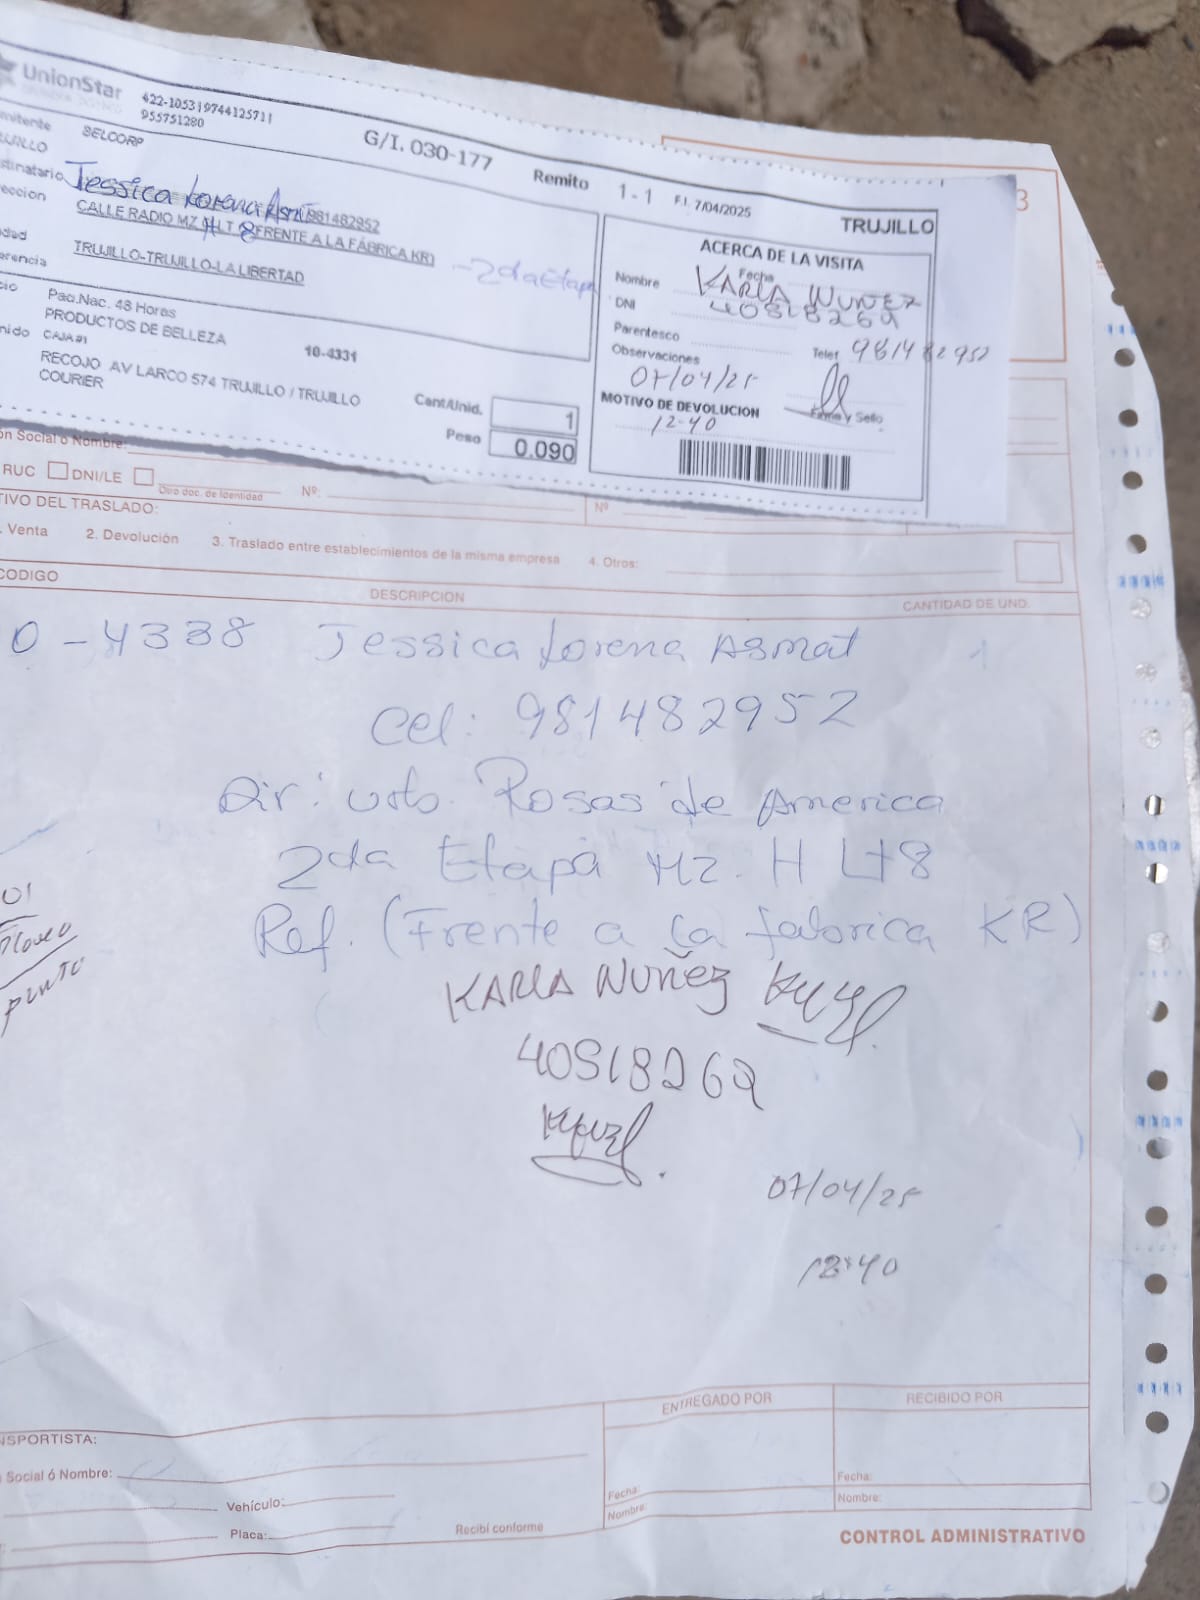 UnionStar
422-105319744125711
955751280
G/I. 030-177
Remito
1 - 1
F.I. 7/04/2025
TRUJILLO
mitente
BELCORP
UJILLO
stinatario
Jessica Lorena Asmt 981482952
eccion
CALLE RADIO MZ H LT 8 FRENTE A LA FÁBRICA KR)
- 2da Etapa
dad
TRUJILLO-TRUJILLO-LA LIBERTAD
erencia
cio
Paq.Nac. 48 Horas
PRODUCTOS DE BELLEZA
nido
CAJA #1
10-4331
RECOJO AV LARCO 574 TRUJILLO / TRUJILLO
COURIER
Cant/Unid.
1
Peso
0.090
ACERCA DE LA VISITA
Fecha
Nombre KARLA NUÑEZ
DNI 40818269
Parentesco
Telef 981482952
Observaciones
07/04/25
MOTIVO DE DEVOLUCION
Firma y Sello
12-40
3
on Social ó Nombre:
RUC DNI/LE
Otro doc. de Identidad
Nº:
Nº
TIVO DEL TRASLADO:
. Venta 2. Devolución 3. Traslado entre establecimientos de la misma empresa 4. Otros:
CODIGO
DESCRIPCION
CANTIDAD DE UND.
0 - 4338 Jessica Lorena Asmat 1
Cel: 981482952
Dir: urb. Rosas de America
2da Etapa Mz. H Lt 8
Ref. (Frente a la fabrica KR)
01
pinto
KARLA NUÑEZ
40818269
07/04/25
12:40
NSPORTISTA:
Social ó Nombre:
Vehículo:
Placa:
Recibí conforme
ENTREGADO POR
Fecha:
Nombre:
RECIBIDO POR
Fecha:
Nombre:
CONTROL ADMINISTRATIVO